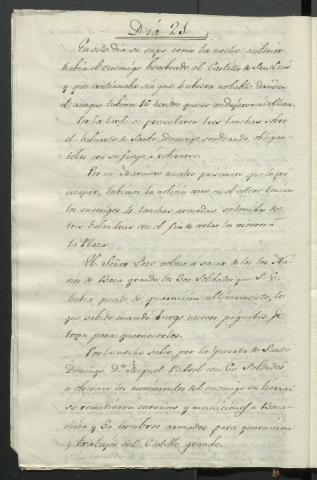 Dia 21.
En este dia se supo como la noche anterior
habia el enemigo bombeado el Castillo de San Luis
y que continuaba sin que hubiera notable daño en
el, aunque tubimos 10 heridos que se condujeron a la Plaza.
Por la tarde se presentaron tres lanchas sobre
el baluarte de Santo Domingo sondeando, obligan-
dolas con su fuego á retirarse.
Por un Marinero nuestro prisionero que logró
escapar, tubimos la noticia como en el estero tenian
los enemigos 4 lanchas armadas sostenidas de
tres balandras con el fin de cortar los viveres á
la Plaza.
El Señor Leso volvió á sacar de los dos Na-
vios de Boca grande los dos Soldados que S. E.
habia puesto de guarnicion ultimamente, lo
que sabido mando luego nuevos piquetes de
tropa para guarnecerlos.
Por la noche salió por la puerta de Santo
Domingo Dn. Miguel Pedrol con Soldados
á observar los movimientos del enemigo en tierra:
se remitieron cureñas y municiones á Boca-
chica y 50 hombres armados para guarnicion
y trabajos del Castillo grande.